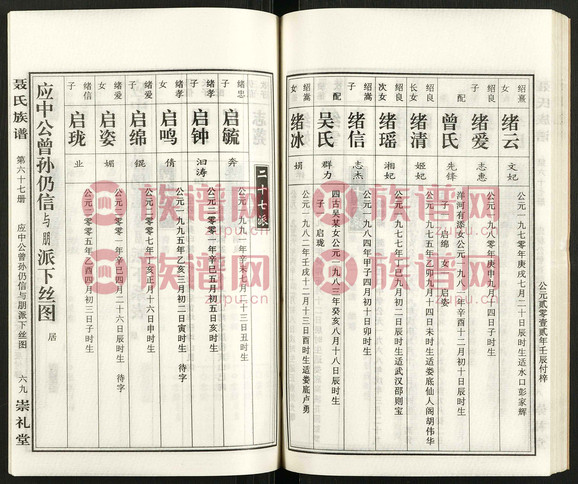 公元贰零壹贰年壬辰付梓
绍熹 女 绪云 文妃 公元一九七〇年庚戌九月二十日辰时生适水口彭家辉
绍良 子 绪爱 志惠
配 曾氏 先锋 洋河有漆女公元一九八一年辛酉十二月初十日辰时生
子 启绵 女 启姿
绍良 长女 绪清 姬妃 公元一九七五年乙卯九月十四日未时生适娄底仙人阁胡伟华
次女 绪瑶 湘妃 公元一九七七年丁巳九月初二日辰时生适武汉邵则宝
绍嵩 子 绪信 志杰 公元一九八四年甲子四月初十日卯时生
配 吴氏 群力 四古吴某女公元一九八三年癸亥八月十八日辰时生
子 启珑
绍嵩 女 绪冰 娟 公元一九八二年壬戌十二月十三日酉时生适娄底卢勇
二十七派
绪忠 子 启毓 奔 公元一九九一年辛未七月二十日丑时生
绪孝 子 启钟 泗涛 公元二〇〇一年辛巳五月初五日亥时生
绪孝 女 启鸣 倩 公元一九九五年乙亥三月初二日寅时生 待字
绪爱 子 启绵 锟 公元二〇〇七年丁亥正月十六日申时生
绪爱 女 启姿 媚 公元二〇〇一年辛巳四月二十六日辰时生 待字
绪信 子 启珑 业 公元二〇〇五年乙酉四月初三日子时生
应中公曾孙仍信与朋派下丝图 居
聂氏族谱 第六十七册 应中公曾孙仍信与朋派下丝图 六九 崇礼堂
族谱网
zupu.cn